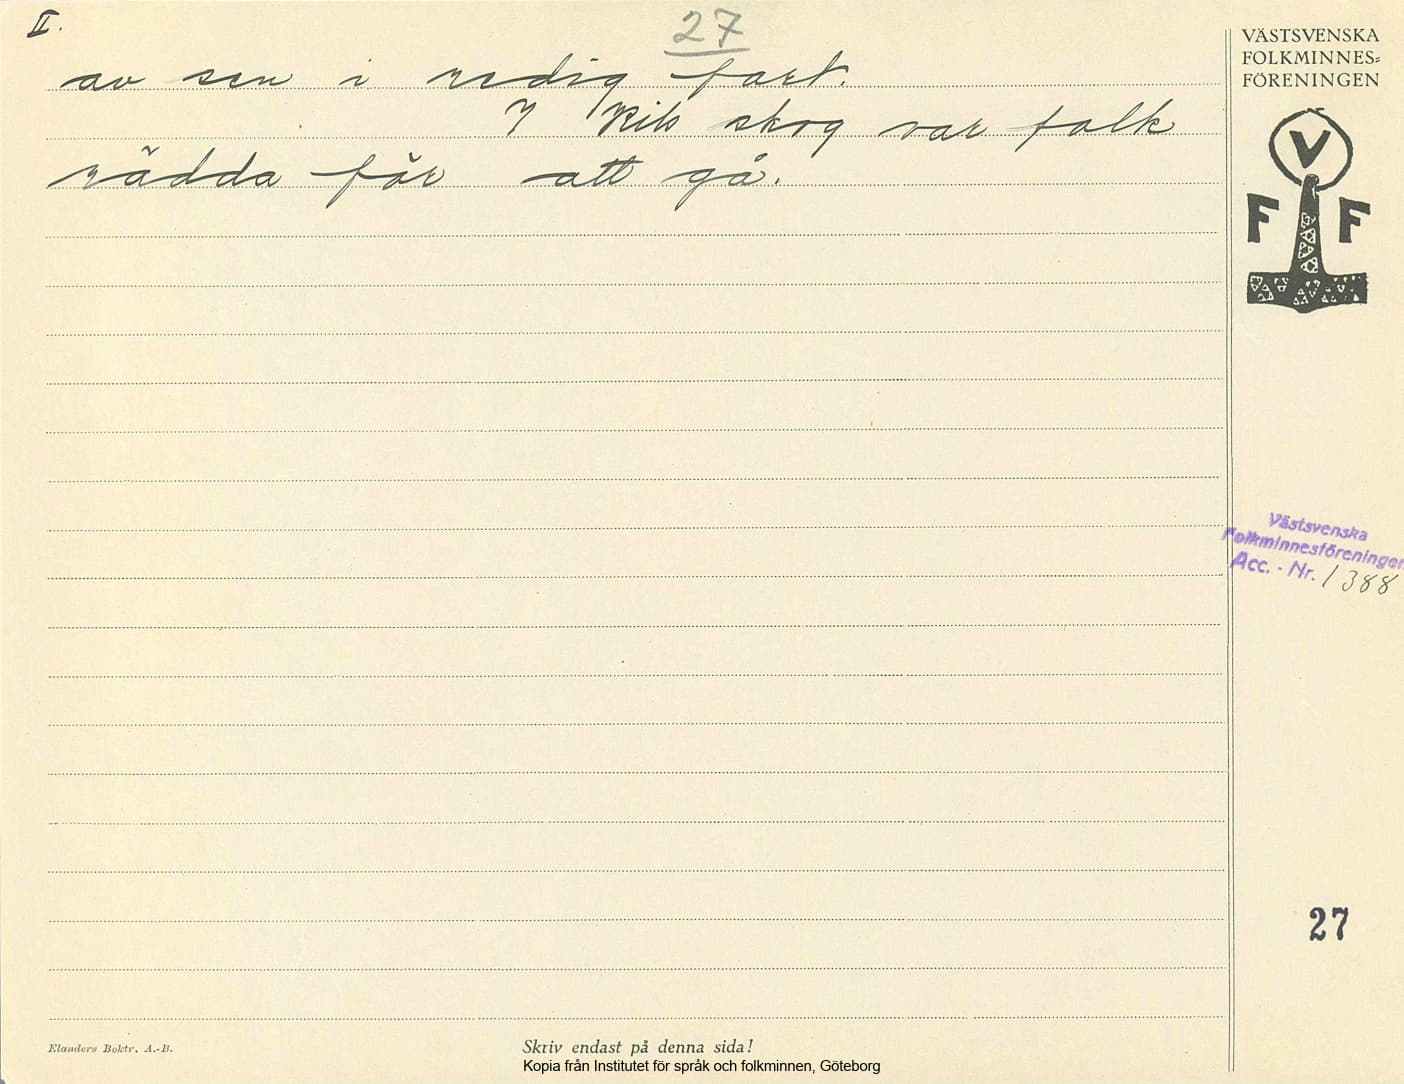 II.
27
av sen i redig fart.
I Kils skog var folk
rädda för att gå.
VÄSTSVENSKA
FOLKMINNES=
FÖRENINGEN
V
F F
Västsvenska
Folkminnesföreningen
Acc. - Nr. 1388
27
Elanders Boktr. A.-B.
Skriv endast på denna sida!
Kopia från Institutet för språk och folkminnen, Göteborg